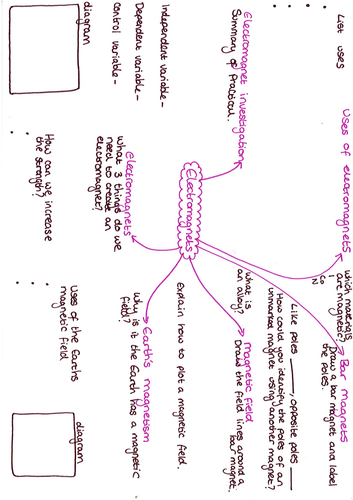 Uses of electromagnets
List uses
Bar magnets
Draw a bar magnet and label
the poles.
which materials
are magnetic?
I
Co
N
Like poles ____, opposite poles ____
How could you identify the poles of a
unmarked magnet using another magnet?
what is
an alloy?
magnetic field
Draw the field lines around a
bar magnet.
Explain how to plot a magnetic field.
Electromagnet investigation
Summary of Practical.
Independent variable -
Dependent variable -
control variable -
diagram
Electromagnets
Electromagnets
What 3 things do we
need to create an
electromagnet?
How can we increase
the strength?
Earth's magnetism
Why is it the Earth has a magnetic
field?
Uses of the Earths
magnetic field
diagram